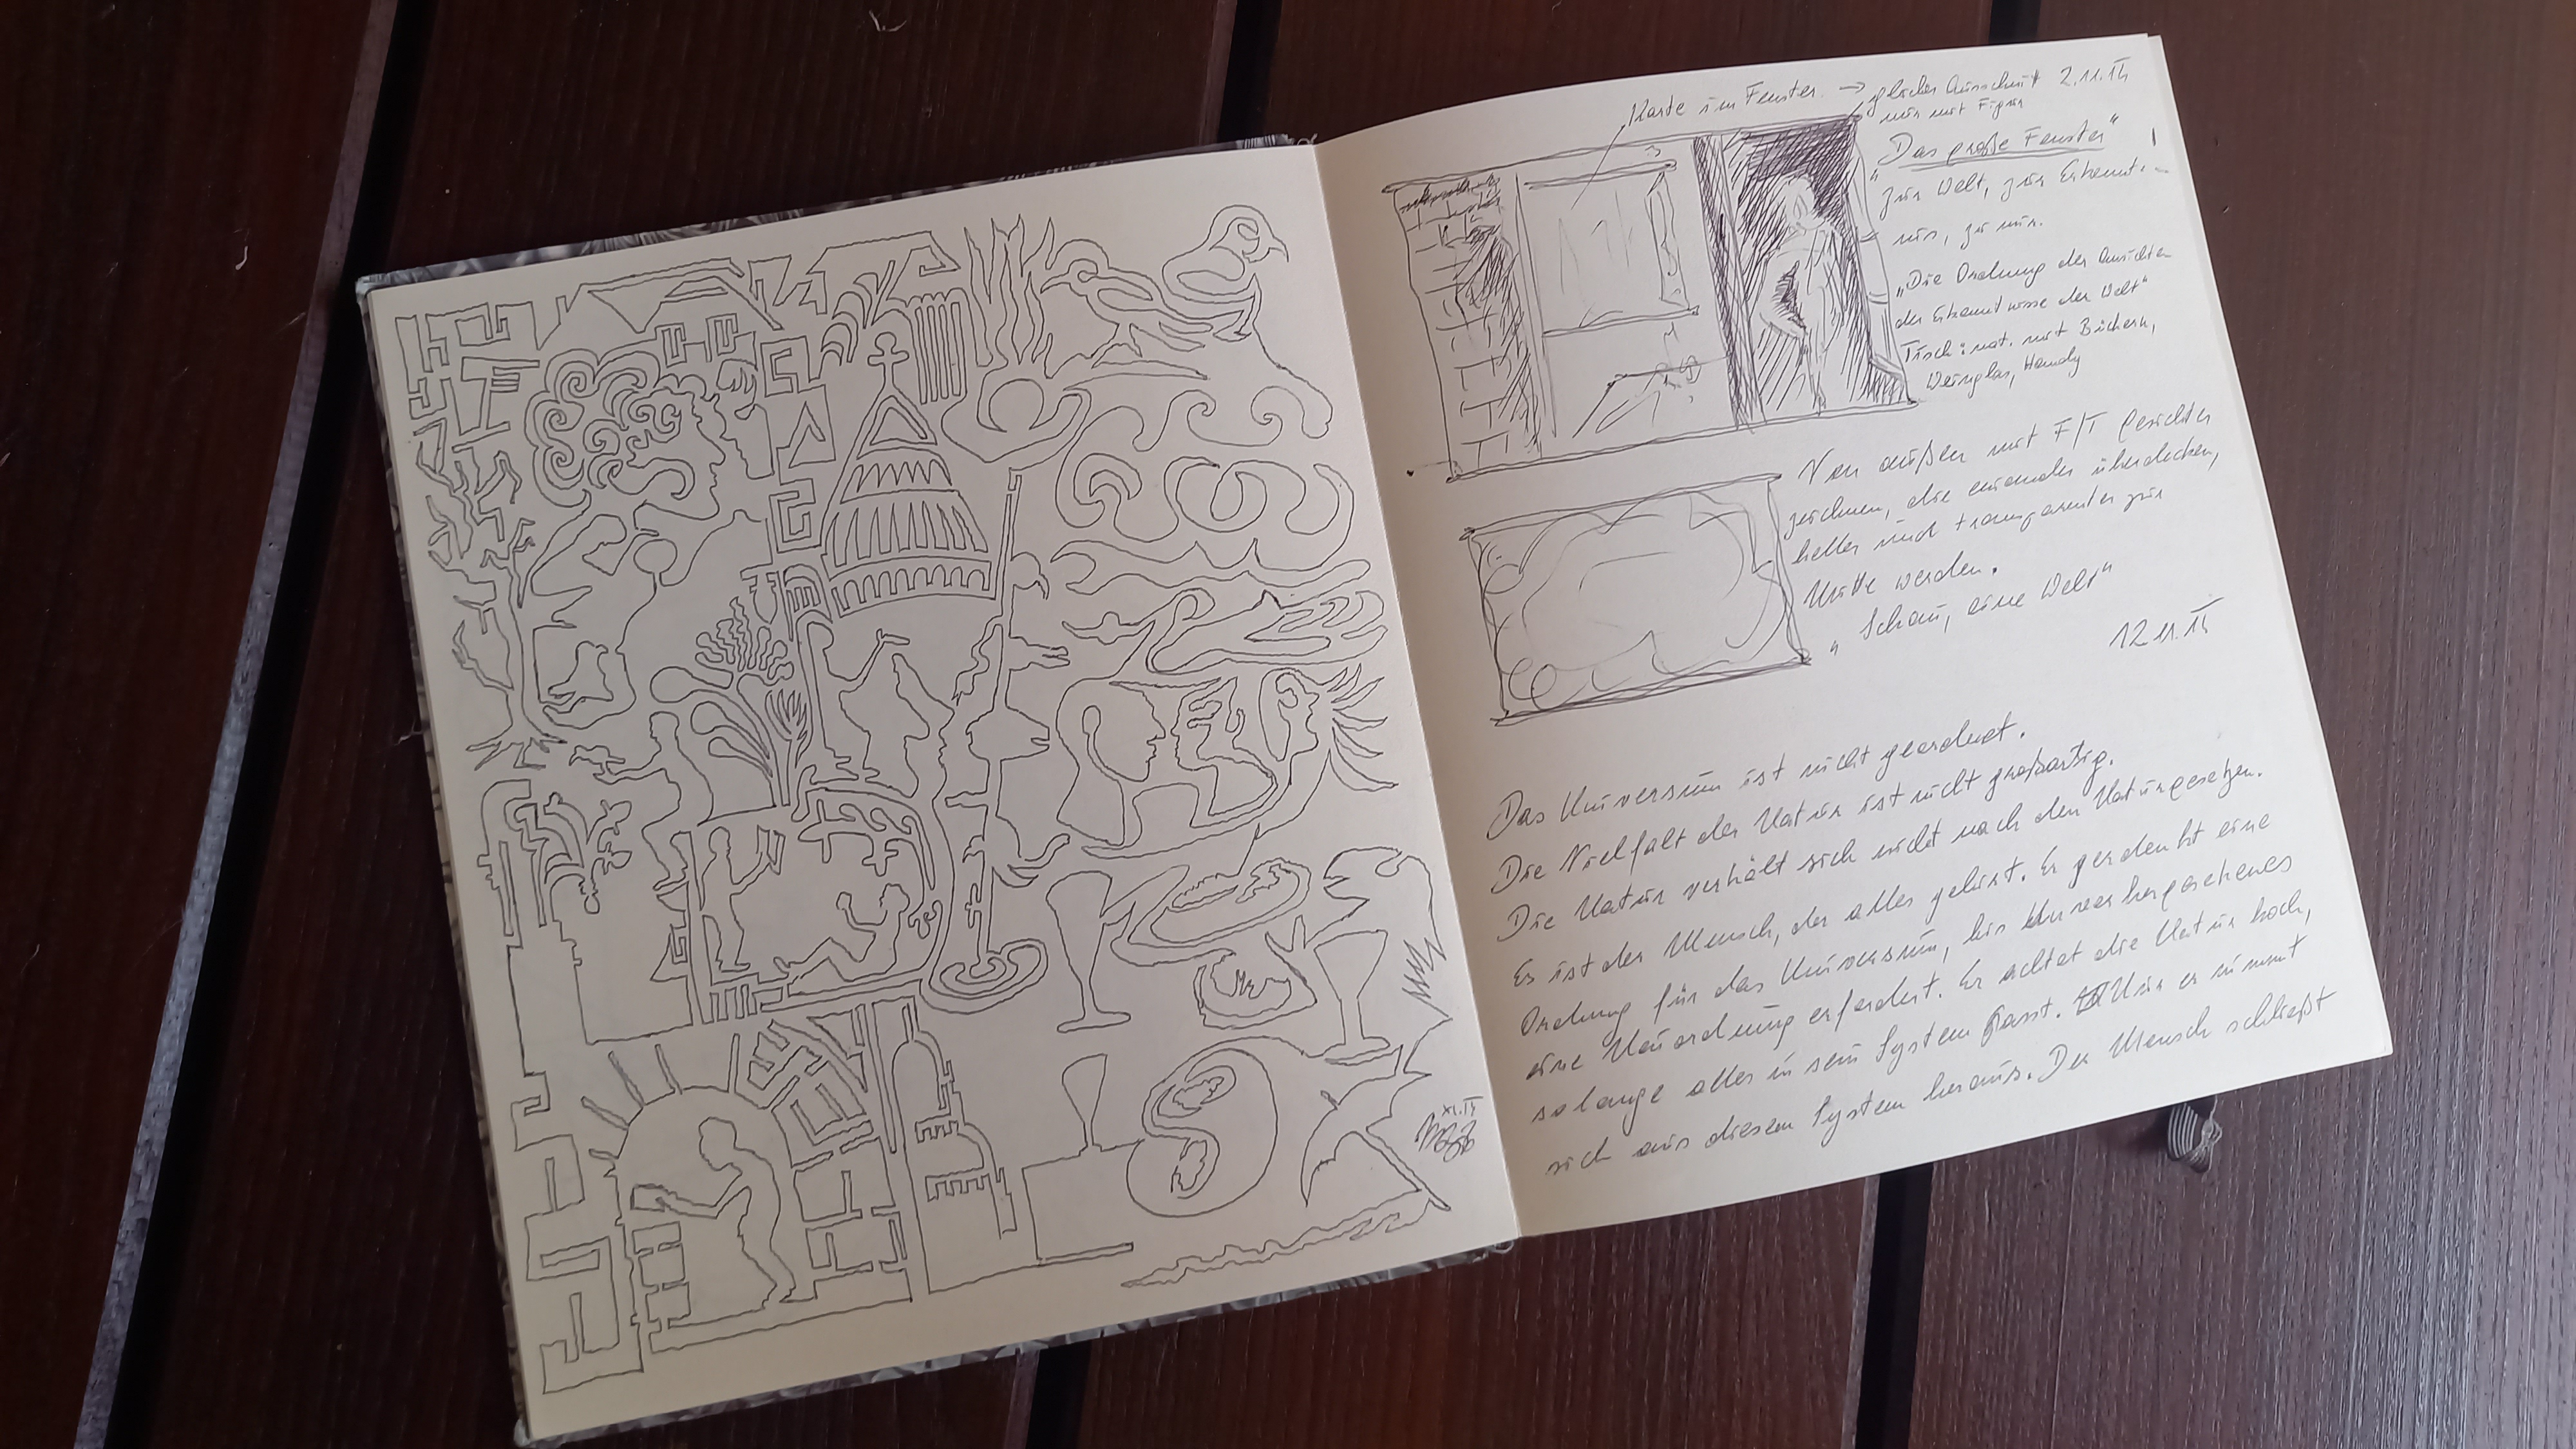 Karte im Fenster → gleicher Ausschnitt 2.11.14
nur mit Figur
"Das große Fenster"
zur Welt, zur Erkennt-
nis, zu mir.
"Die Ordnung der Ansichten
der Erkenntnisse der Welt"
Tisch: nat. mit Büchern,
Weinglas, Handy
Von außen mit F/T Gesichter
zeichnen, die einander überdecken,
heller und transparenter zur
Mitte werden.
"Schau, eine Welt"
12.11.14
Das Universum ist nicht geordnet.
Die Vielfalt der Natur ist nicht großartig.
Die Natur verhält sich nicht nach den Naturgesetzen.
Es ist der Mensch, der alles gelüst. Er zerdenkt eine
Ordnung für das Universum, bis Unvorhergesehenes
eine Neuordnung erfordert. Er achtet die Natur hoch,
solange alles in sein System passt. Nur er nimmt
sich aus diesem System heraus. Der Mensch schließt
XI.14